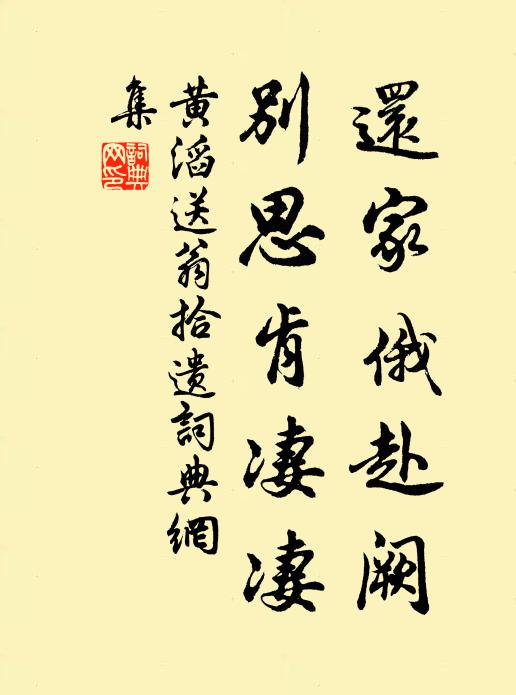 還家俄赴闕
別思肯凄凄
黃滔送翁拾遺詞典網
集
詞典
网印